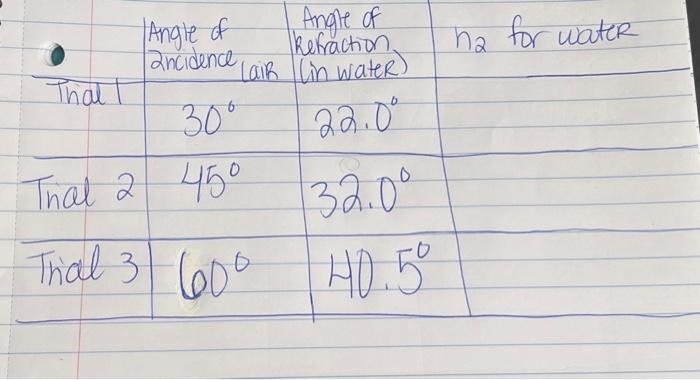 Angle of Incidence (air
Angle of Refraction (in water)
n2 for water
Trial 1 30° 22.0°
Trial 2 45° 32.0°
Trial 3 60° 40.5°